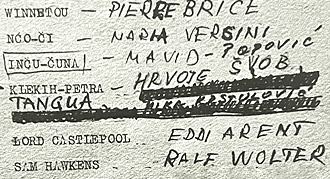 WINNETOU - PIERRE BRICE
NČO-ČI - MARIA VERSINI
INČU-ČUNA - MAVID - POPOVIĆ
KLEKIH-PETRA - HRVOJE ŠVOB
TANGUA
LORD CASTLEPOOL - EDDI ARENT
SAM HAWKENS - RALF WOLTER